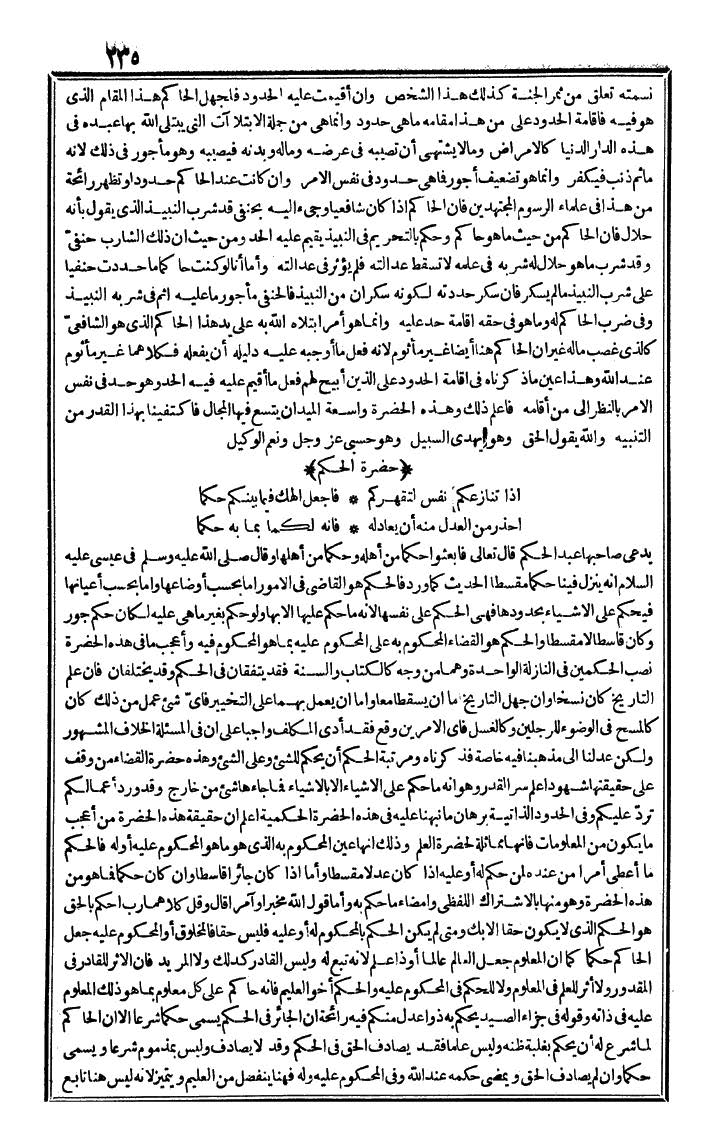 ٢٣٥
نسمته تعلق من ثمر الجنة كذلك هذا الشخص وان أقيمت عليه الحدود فلجهل الحاكم هذا المقام الذى
هو فيه فاقامة الحدود على من هذا مقامه ماهى حدود وانماهى من جملة الابتلاآت التى يبتلى الله بها عبده فى
هذه الدار الدنيا كالامراض ومالا يشتهى أن تصيبه فى عرضه وماله وبدنه فيصيبه وهو مأجور فى ذلك لانه
ماثم ذنب فيكفر وانما هو تضعيف أجور فماهى حدود فى نفس الامر وان كانت عند الحاكم حدودا وتظهر رائحة
من هذا فى علماء الرسوم المجتهدين فان الحاكم اذا كان شافعيا وجىء اليه بحنفى قد شرب النبيذ الذى يقول بأنه
حلال فان الحاكم من حيث ما هو حاكم وحكم بالتحريم فى النبيذ يقيم عليه الحد ومن حيث ان ذلك الشارب حنفىّ
وقد شرب ما هو حلال له شربه فى علمه لا تسقط عدالته فلم يؤثر فى عدالته وأما أنا لو كنت حاكما ما حددت حنفيا
على شرب النبيذ مالم يسكر فان سكر حددته لكونه سكران من النبيذ فالحنفى مأجور ما عليه اثم فى شربه النبيذ
وفى ضرب الحاكم له وما هو فى حقه اقامة حد عليه وانما هو أمر ابتلاه الله به على يد هذا الحاكم الذى هو الشافعىّ
كالذى غصب ماله غير ان الحاكم هنا أيضا غير مأثوم لانه فعل ما أوجبه عليه دليله أن يفعله فكلاهما غير مأثوم
عند الله وهذا عين ماذكرناه فى اقامة الحدود على الذين أبيح لهم فعل ما أقيم عليه فيه الحد وهو حد فى نفس
الامر بالنظر الى من أقامه فاعلم ذلك وهذه الحضرة واسعة الميدان يتسع فيها المجال فاكتفينا بهذا القدر من
التنبيه والله يقول الحق وهو يهدى السبيل وهو حسبى عز وجل ونعم الوكيل
﴿حضرة الحكم﴾
اذا تنازعكم نفس لتقهركم * فاجعل الهك فيما بينكم حكما
احذر من العدل منه أن يعادله * فانه لكما بما به حكما
يدعى صاحبها عبد الحكم قال تعالى فابعثوا حكما من أهله وحكما من أهلها وقال صلى الله عليه وسلم فى عيسى عليه
السلام انه ينزل فينا حكما مقسطا الحديث كما ورد فالحكم هو القاضى فى الامور اما بحسب أوضاعها واما بحسب أعيانها
فيحكم على الاشياء بحدودها فهى الحكم على نفسها لانه ما حكم عليها الا بها ولو حكم بغير ماهى عليه لكان حكم جور
وكان قاسطا لا مقسطا والحكم هو القضاء المحكوم به على المحكوم عليه بما هو المحكوم فيه وأعجب ما فى هذه الحضرة
نصب الحكمين فى النازلة الواحدة وهما من وجه كالكتاب والسنة فقد يتفقان فى الحكم وقد يختلفان فان علم
التاريخ كان نسخا وان جهل التاريخ اما ان يسقطا معا واما ان يعمل بهما على التخيير فاىّ شئ عمل من ذلك كان
كالمسح فى الوضوء للرجلين وكالغسل فاى الامرين وقع فقد أدى المكلف واجبا على ان فى المسئلة الخلاف المشهور
ولكن عدلنا الى مذهبنا فيه خاصة فذكرناه ومرتبة الحكم أن يحكم للشئ وعلى الشئ وهذه حضرة القضاء من وقف
على حقيقتها شهودا علم سر القدر وهو انه ما حكم على الاشياء الا بالاشياء فما جاءها شئ من خارج وقد ورد أعمالكم
تردّ عليكم وفى الحدود الذاتية برهان ما نبهنا عليه فى هذه الحضرة الحكمية اعلم ان حقيقة هذه الحضرة من أعجب
ما يكون من المعلومات فانها مماثلة لحضرة العلم وذلك انها عين المحكوم به الذى هو ما هو المحكوم عليه أوله فالحكم
ما أعطى أمرا من عنده لمن حكم له أو عليه اذا كان عدلا مقسطا وأما اذا كان جائرا قاسطا وان كان حكما فما هو من
هذه الحضرة وهو منها بالاشتراك اللفظى وامضاء ما حكم به وأما قول الله مخبرا وآمرا قال وقل كلاهما رب احكم بالحق
هو الحكم الذى لا يكون حقا الا بك ومتى لم يكن الحكم بالمحكوم له أو عليه فليس حقا فالمخلوق أو المحكوم عليه جعل
الحاكم حكما كما ان المعلوم جعل العالم عالما أو ذا علم لانه تبع له وليس القادر كذلك ولا المريد فان الاثر للقادر فى
المقدور ولا أثر للعلم فى المعلوم ولا للحكم فى المحكوم عليه والحكم أخو العليم فانه حاكم على كل معلوم بما هو ذلك المعلوم
عليه فى ذاته وقوله فى جزاء الصيد يحكم به ذوا عدل منكم فيه رائحة ان الجائر فى الحكم يسمى حكما شرعا الا ان الحاكم
لما شرع له أن يحكم بغلبة ظنه وليس علما فقد يصادف الحق فى الحكم وقد لا يصادف وليس بمذموم شرعا ويسمى
حكما وان لم يصادف الحق ويمضى حكمه عند الله وفى المحكوم عليه وله فهنا ينفصل من العليم ويتميز لانه ليس هنا تابع